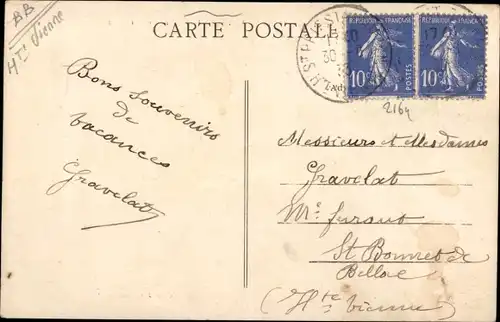 BB
Hte Vienne
CARTE POSTALE
REPUBLIQUE FRANÇAISE
10c POSTES
10c POSTES
2164
Bons souvenirs
de
vacances
Gravelat
Messieurs et Mesdames
Gravelat
St Bonnet de
Bellac
(Hte Vienne)